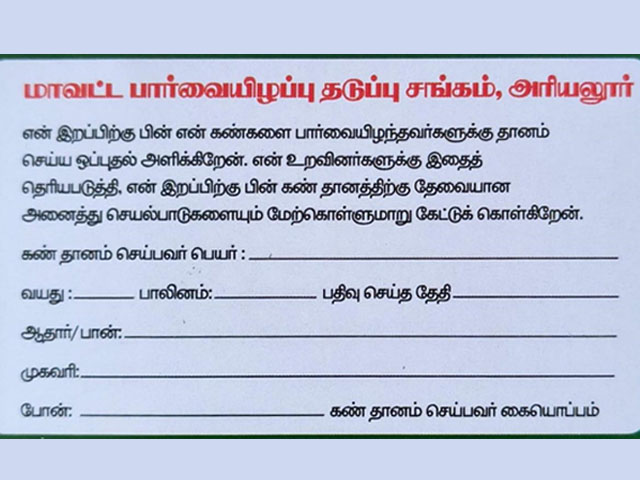 மாவட்ட பார்வையிழப்பு தடுப்பு சங்கம், அரியலூர்
என் இறப்பிற்கு பின் என் கண்களை பார்வையிழந்தவர்களுக்கு தானம்
செய்ய ஒப்புதல் அளிக்கிறேன். என் உறவினர்களுக்கு இதைத்
தெரியபடுத்தி, என் இறப்பிற்கு பின் கண் தானத்திற்கு தேவையான
அனைத்து செயல்பாடுகளையும் மேற்கொள்ளுமாறு கேட்டுக் கொள்கிறேன்.
கண் தானம் செய்பவர் பெயர் :
வயது : பாலினம்: பதிவு செய்த தேதி
ஆதார்/பான்:
முகவரி:
போன்: கண் தானம் செய்பவர் கையொப்பம்